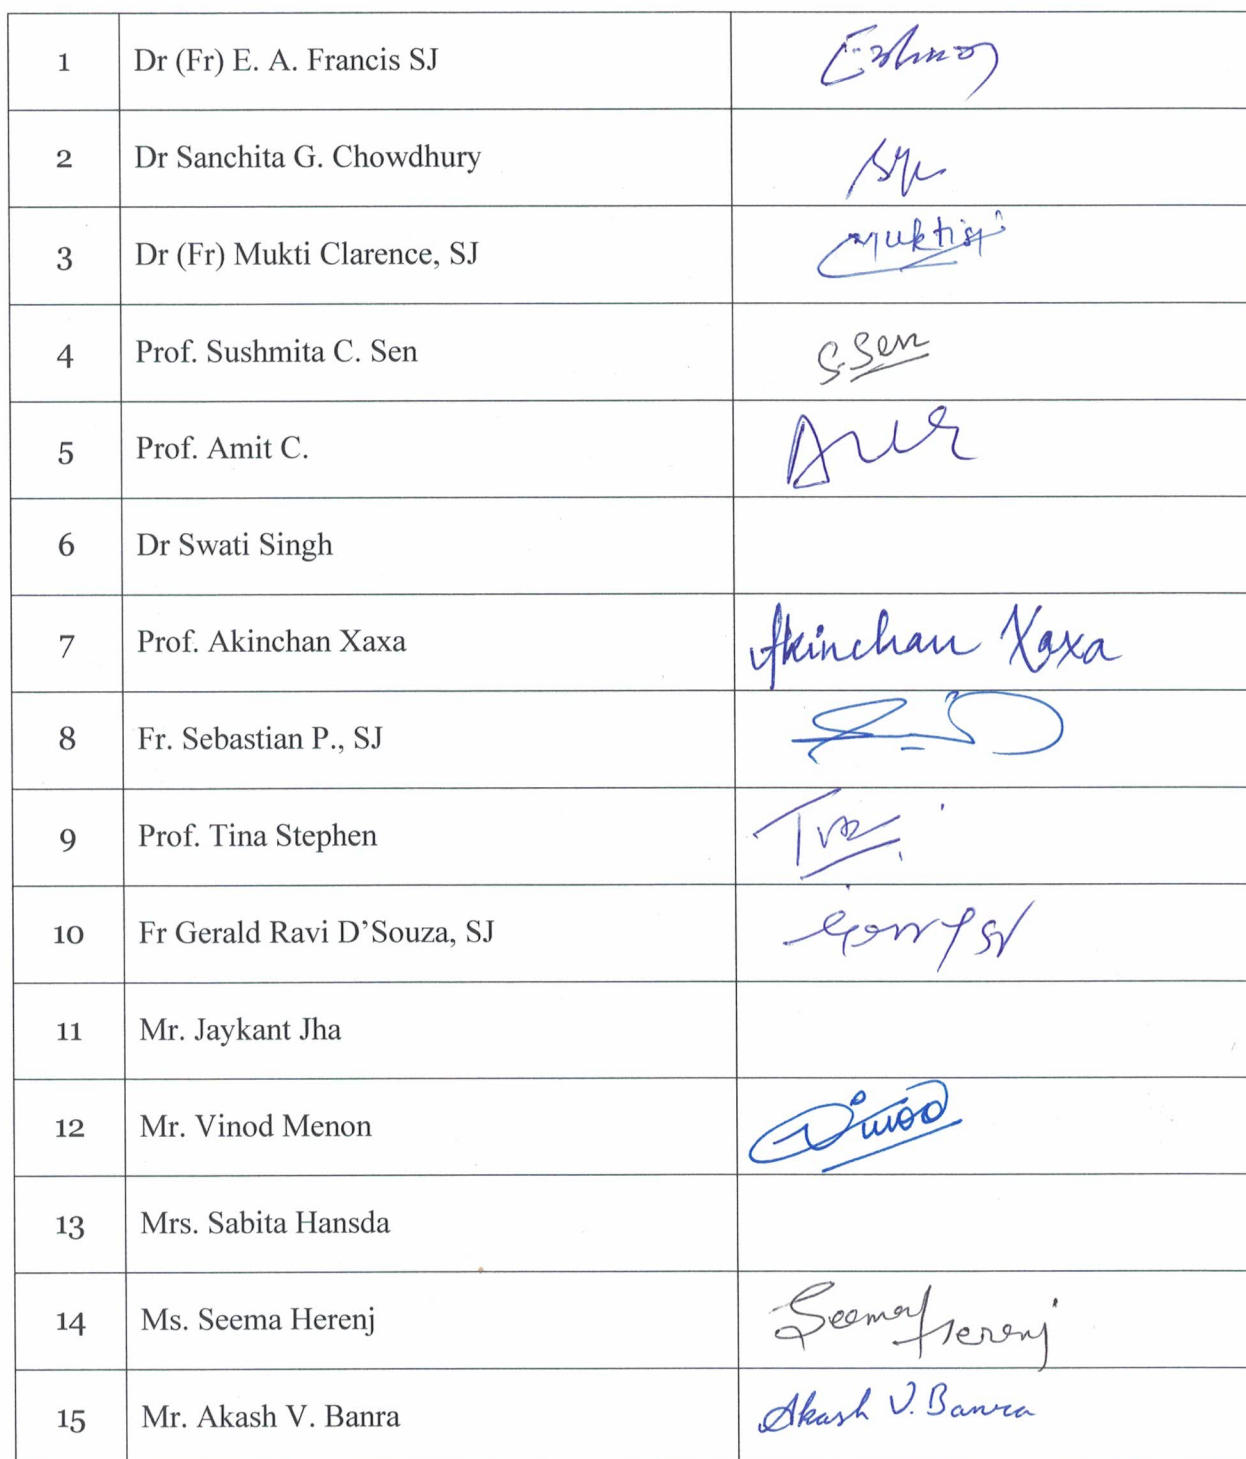 1 Dr (Fr) E. A. Francis SJ
2 Dr Sanchita G. Chowdhury
3 Dr (Fr) Mukti Clarence, SJ Muktisj
4 Prof. Sushmita C. Sen S.Sen
5 Prof. Amit C.
6 Dr Swati Singh
7 Prof. Akinchan Xaxa Akinchan Xaxa
8 Fr. Sebastian P., SJ
9 Prof. Tina Stephen
10 Fr Gerald Ravi D’Souza, SJ
11 Mr. Jaykant Jha
12 Mr. Vinod Menon Vinod
13 Mrs. Sabita Hansda
14 Ms. Seema Herenj Seema Herenj
15 Mr. Akash V. Banra Akash V. Banra